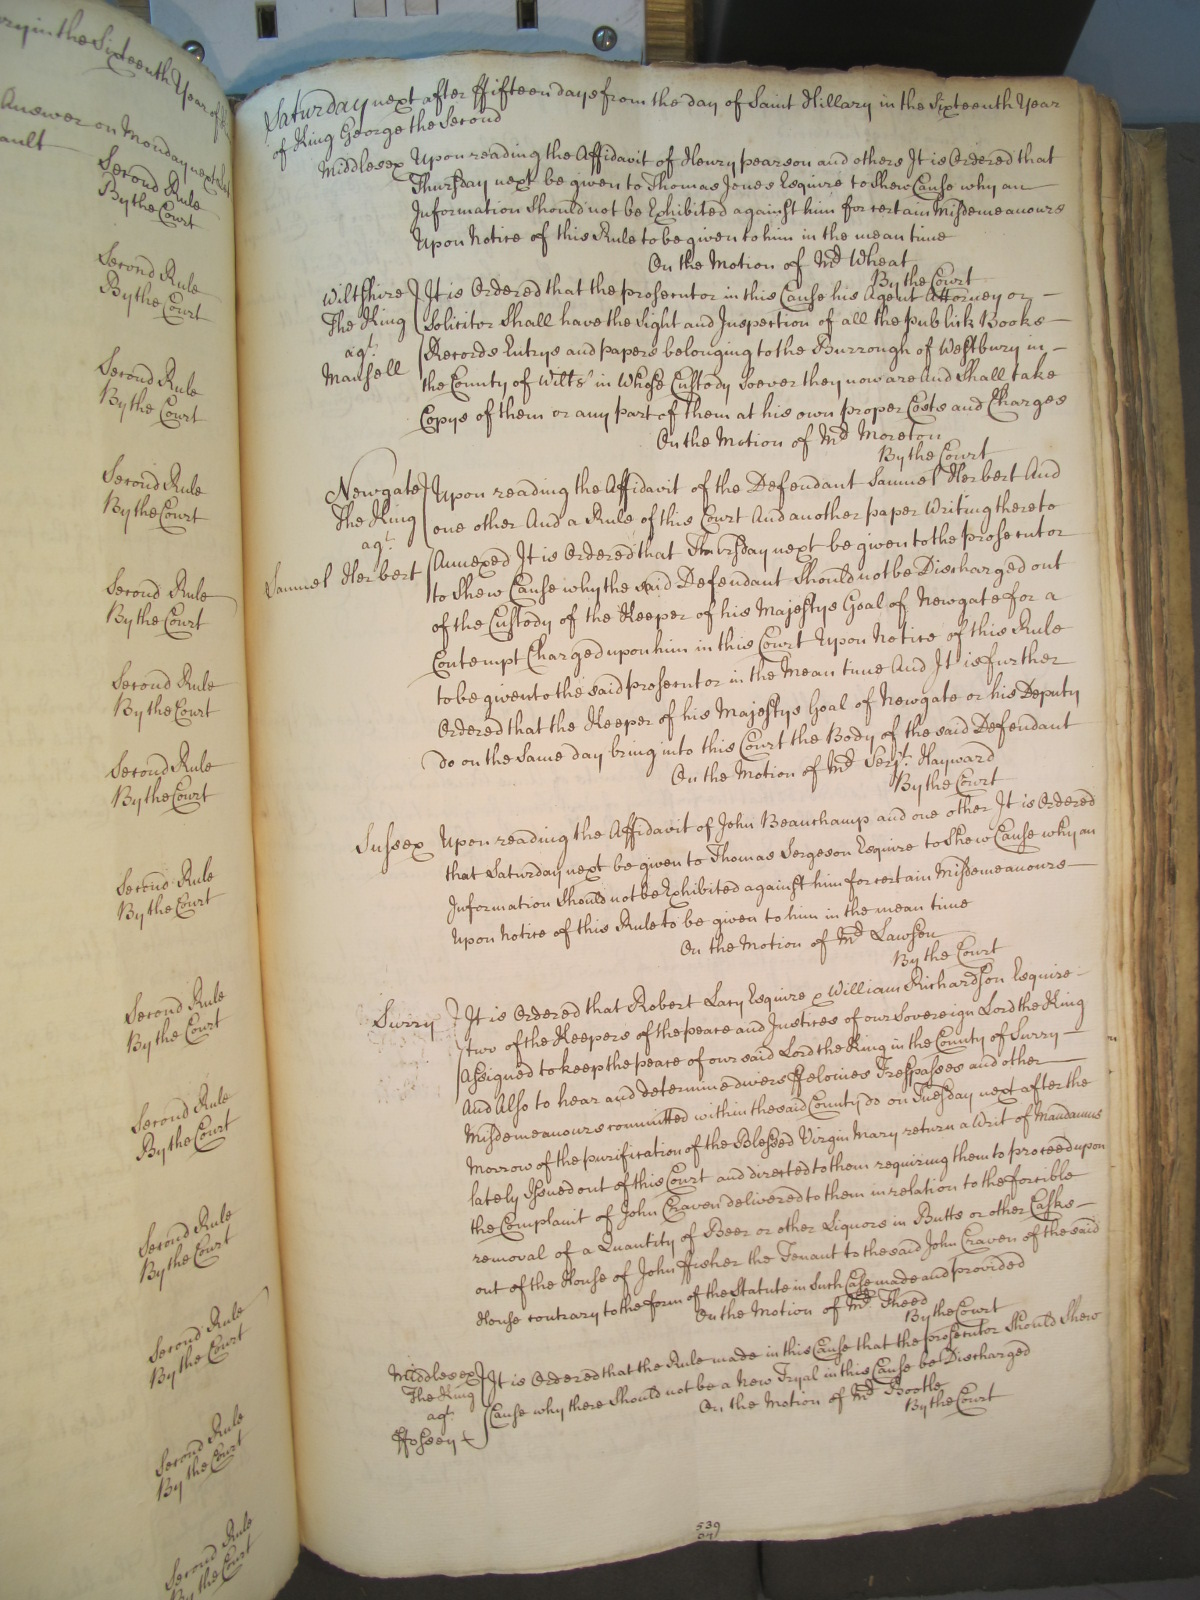 ry in the Sixteenth Year of
Answer on Monday next
ault
Second Rule
By the Court
Second Rule
By the Court
Second Rule
By the Court
Second Rule
By the Court
Second Rule
By the Court
Second Rule
By the Court
Second Rule
By the Court
Second Rule
By the Court
Second Rule
By the Court
Second Rule
By the Court
Second Rule
By the Court
Second Rule
By the Court
Second Rule
By the Court
Second Rule
By the Court
Saturday next after ffifteen days from the day of Saint Hillary in the Sixteenth Year
of King George the Second
Middlesex Upon reading the Affidavit of Henry pearson and others It is Ordered that
Thursday next be given to Thomas Jones Esquire to Shew Cause why an
Information Should not be Exhibited against him for certain Misdemeanours
Upon Notice of this Rule to be given to him in the mean time
On the Motion of Mr Wheat
By the Court
Wiltshire It is Ordered that the prosecutor in this Cause his Agent Attorney or
The King Solicitor Shall have the Sight and Inspection of all the publick Books
agt. Records Entrys and papers belonging to the Burrough of Westbury in
Mansell the County of Wilts' in Whose Custody soever they now are And Shall take
Copys of them or any part of them at his own proper Costs and Charges
On the Motion of Mr Moreton
By the Court
Newgate Upon reading the Affidavit of the Defendant Samuel Herbert And
The King one other And a Rule of this Court And another paper Writing thereto
agt. Annexed It is Ordered that Thursday next be given to the prosecutor
Samuel Herbert to Shew Cause why the said Defendant Should not be Discharged out
of the Custody of the Keeper of his Majestys Goal of Newgate for a
Contempt Charged upon him in this Court Upon Notice of this Rule
to be given to the said prosecutor in the Mean time And It is further
Ordered that the Keeper of his Majestys Goal of Newgate or his Deputy
do on the Same day bring into this Court the Body of the said Defendant
On the Motion of Mr Serjt. Hayward
By the Court
Sussex Upon reading the Affidavit of John Beauchamp and one other It is Ordered
that Saturday next be given to Thomas Sergeson Esquire to Shew Cause why an
Information Should not be Exhibited against him for certain Misdemeanours
Upon Notice of this Rule to be given to him in the mean time
On the Motion of Mr Lawson
By the Court
Surry It is Ordered that Robert Lacy Esquire & William Richardson Esquire
two of the Keepers of the peace and Justices of our Sovereign Lord the King
Assigned to keep the peace of our said Lord the King in the County of Surry
And Also to hear and determine divers ffelonies Trespasses and other
Misdemeanours committed within the said County do on Tuesday next after the
Morrow of the purification of the Blessed Virgin Mary return a Writ of Mandamus
lately Issued out of this Court and directed to them requiring them to proceed upon
the Complaint of John Craven delivered to them in relation to the forcible
removal of a Quantity of Beer or other Liquors in Butts or other Casks
out of the House of John ffisher the Tenant to the said John Craven of the said
House contrary to the form of the Statute in Such Case made and provided
On the Motion of Mr Theed
By the Court
Middlesex It is Ordered that the Rule made in this Cause that the prosecutor Should Shew
The King Cause why there Should not be a New Tryal in this Cause be Discharged
agt. On the Motion of Mr Bootle
By the Court
539